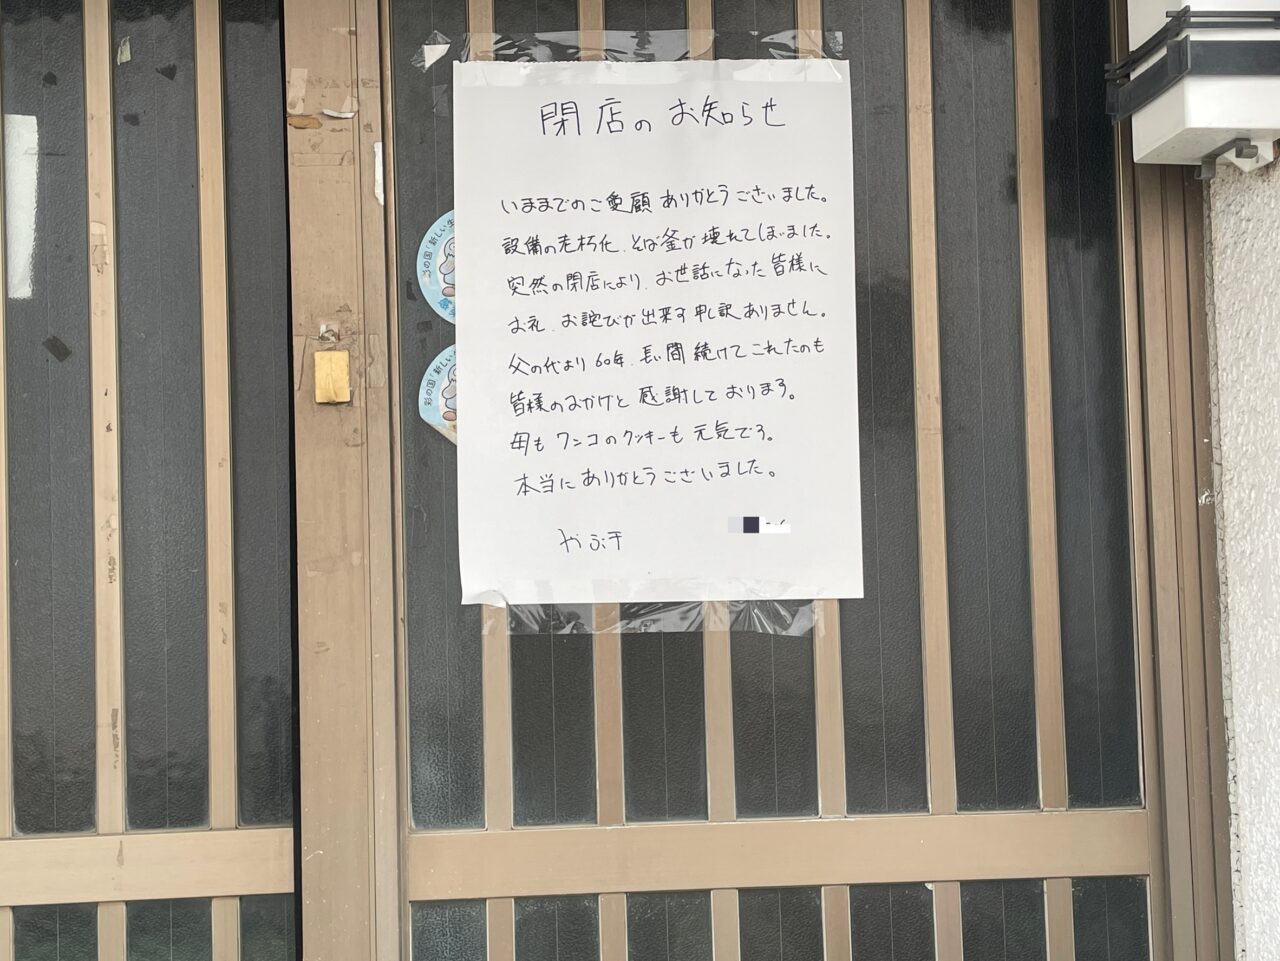 閉店のお知らせ
いままでのご愛顧ありがとうございました。
設備の老朽化、そば釜が壊れてしまいました。
突然の閉店により、お世話になった皆様に
お礼、お詫びが出来ず申し訳ありません。
父の代より60年、長い間続けてこれたのも
皆様のおかげと感謝しております。
母もワンコのクッキーも元気です。
本当にありがとうございました。
やぶ平
彩の国「新しい生